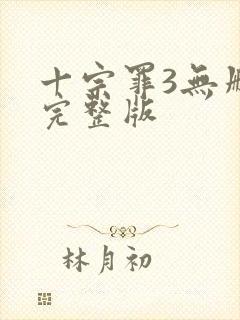 十宗罪3無刪
完整版
林月初